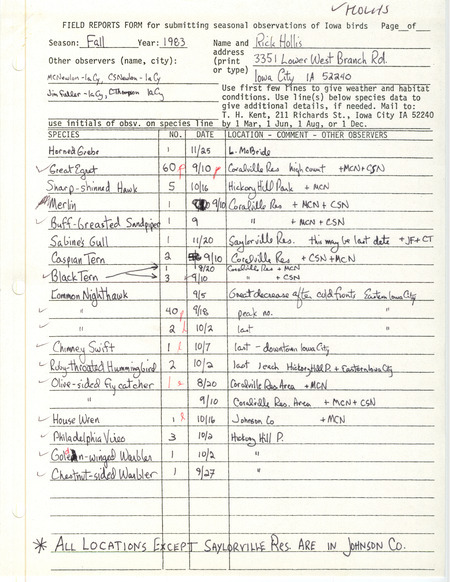 ✓HOLLIS
FIELD REPORTS FORM for submitting seasonal observations of Iowa birds Page of
Season: Fall Year: 1983 Name and Rick Hollis
address 3351 Lower West Branch Rd.
Other observers (name, city): (print
or type) Iowa City IA 52240
MCNewlon-Ia Cy, CSNewlon-Ia Cy
Jim Fuller-Ia Cy, CThompson Ia Cy
Use first few lines to give weather and habitat
conditions. Use line(s) below species data to
give additional details, if needed. Mail to:
T. H. Kent, 211 Richards St., Iowa City IA 52240
use initials of obsv. on species line by 1 Mar, 1 Jun, 1 Aug, or 1 Dec.
SPECIES NO. DATE LOCATION - COMMENT - OTHER OBSERVERS
Horned Grebe 1 11/25 L. McBride
✓ Great Egret 60 9/10 Coralville Res high count +MCN+CSN
Sharp-shinned Hawk 5 10/16 Hickory Hill Park + MCN
Merlin 1 9/10 Coralville Res + MCN + CSN
✓ Buff-Breasted Sandpiper 1 9 " + MCN + CSN
Sabine's Gull 1 11/20 Saylorville Res. this may be last date + JF+CT
Caspian Tern 2 9/10 Coralville Res + CSN+MCN
✓ Black Tern 1 8/20 Coralville Res + MCN
3 9/10 " + CSN
Common Nighthawk 9/5 Great decrease after cold fronts Eastern Iowa City
✓ " 40 9/18 peak no.
✓ " 2 10/2 last "
✓ Chimney Swift 1 10/7 last - downtown Iowa City
✓ Ruby-throated Hummingbird 2 10/2 last 1 each Hickory Hill P. + Eastern Iowa City
✓ Olive-sided Flycatcher 1 8/20 Coralville Res Area + MCN
" 9/10 Coralville Res. Area + MCN + CSN
✓ House Wren 1 10/16 Johnson Co + MCN
✓ Philadelphia Vireo 3 10/2 Hickory Hill P.
✓ Golden-winged Warbler 1 10/2 "
✓ Chestnut-sided Warbler 1 9/27 "
* ALL LOCATIONS EXCEPT SAYLORVILLE RES. ARE IN JOHNSON CO.